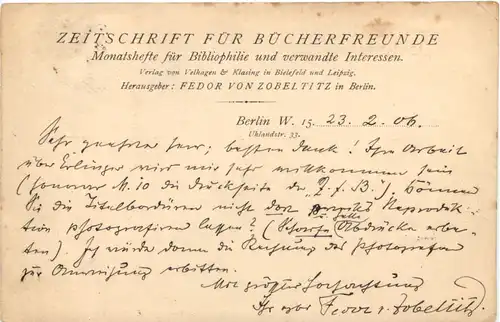 ZEITSCHRIFT FÜR BÜCHERFREUNDE
Monatshefte für Bibliophilie und verwandte Interessen.
Verlag von Velhagen & Klasing in Bielefeld und Leipzig.
Herausgeber: FEDOR VON ZOBELTITZ in Berlin.
Berlin W. 15. 23. 2. 06.
Uhlandstr. 33.
Sehr geehrter Herr, besten Dank! Ihre Arbeit
über Erlinger wird mir sehr willkommen sein
(Honorar M. 10 die Druckseite der "Z. f. B."). Können
Sie die Titelbordüren nicht dort Reproduk-
tion photografieren lassen? (Scharfe u. helle Abdrücke erbe-
ten). Ich würde dann die Rechnung des Photografen
zur Anweisung erbitten.
Mit größter Hochachtung
Ihr ergbr Fedor v. Zobeltitz.